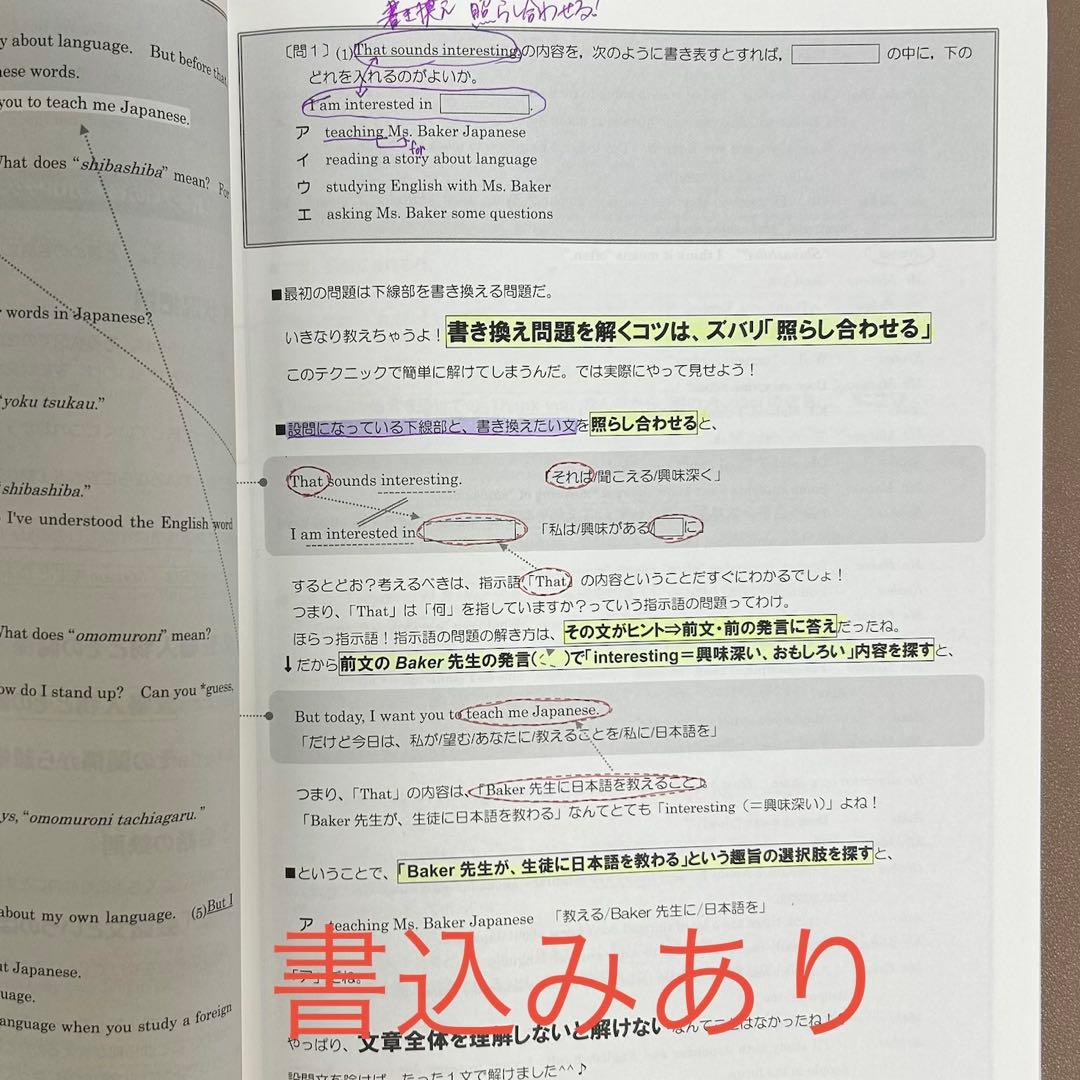 y about language. But before that
ese words.
you to teach me Japanese.
What does “shibashiba” mean? For
words in Japanese?
“yoku tsukau.”
“shibashiba.”
I've understood the English word
What does “omomuroni” mean?
ow do I stand up? Can you *guess,
ys, “omomuroni tachiagaru.”
about my own language. (5)But I
at Japanese.
uage.
anguage when you study a foreign
書き換え 照らし合わせる!
〔問1〕(1)That sounds interesting.の内容を，次のように書き表すとすれば， の中に，下の
どれを入れるのがよいか。
I am interested in .
ア teaching Ms. Baker Japanese
for
イ reading a story about language
ウ studying English with Ms. Baker
エ asking Ms. Baker some questions
■最初の問題は下線部を書き換える問題だ。
いきなり教えちゃうよ！書き換え問題を解くコツは、ズバリ「照らし合わせる」
このテクニックで簡単に解けてしまうんだ。では実際にやって見せよう！
■設問になっている下線部と、書き換えたい文を照らし合わせると、
That sounds interesting. 「それは/聞こえる/興味深く」
I am interested in 「私は/興味がある に」
するとどお？考えるべきは、指示語「That」の内容ということだすぐにわかるでしょ！
つまり、「That」は「何」を指していますか？っていう指示語の問題ってわけ。
ほらっ指示語！指示語の問題の解き方は、その文がヒント⇒前文・前の発言に答えだったね。
↓だから前文の Baker 先生の発言( )で「interesting＝興味深い、おもしろい」内容を探すと、
But today, I want you to teach me Japanese.
「だけど今日は、私が/望む/あなたに/教えることを/私に/日本語を」
つまり、「That」の内容は、「Baker 先生に日本語を教えること」
「Baker 先生が、生徒に日本語を教わる」なんてとても「interesting（＝興味深い）」よね！
■ということで、「Baker 先生が、生徒に日本語を教わる」という趣旨の選択肢を探すと、
ア teaching Ms. Baker Japanese 「教える/Baker 先生に/日本語を」
「ア」だね。
書込みあり
やっぱり、文章全体を理解しないと解けないなんてことはなかったね！
設問文を除けば、たった１文で解けました^^♪